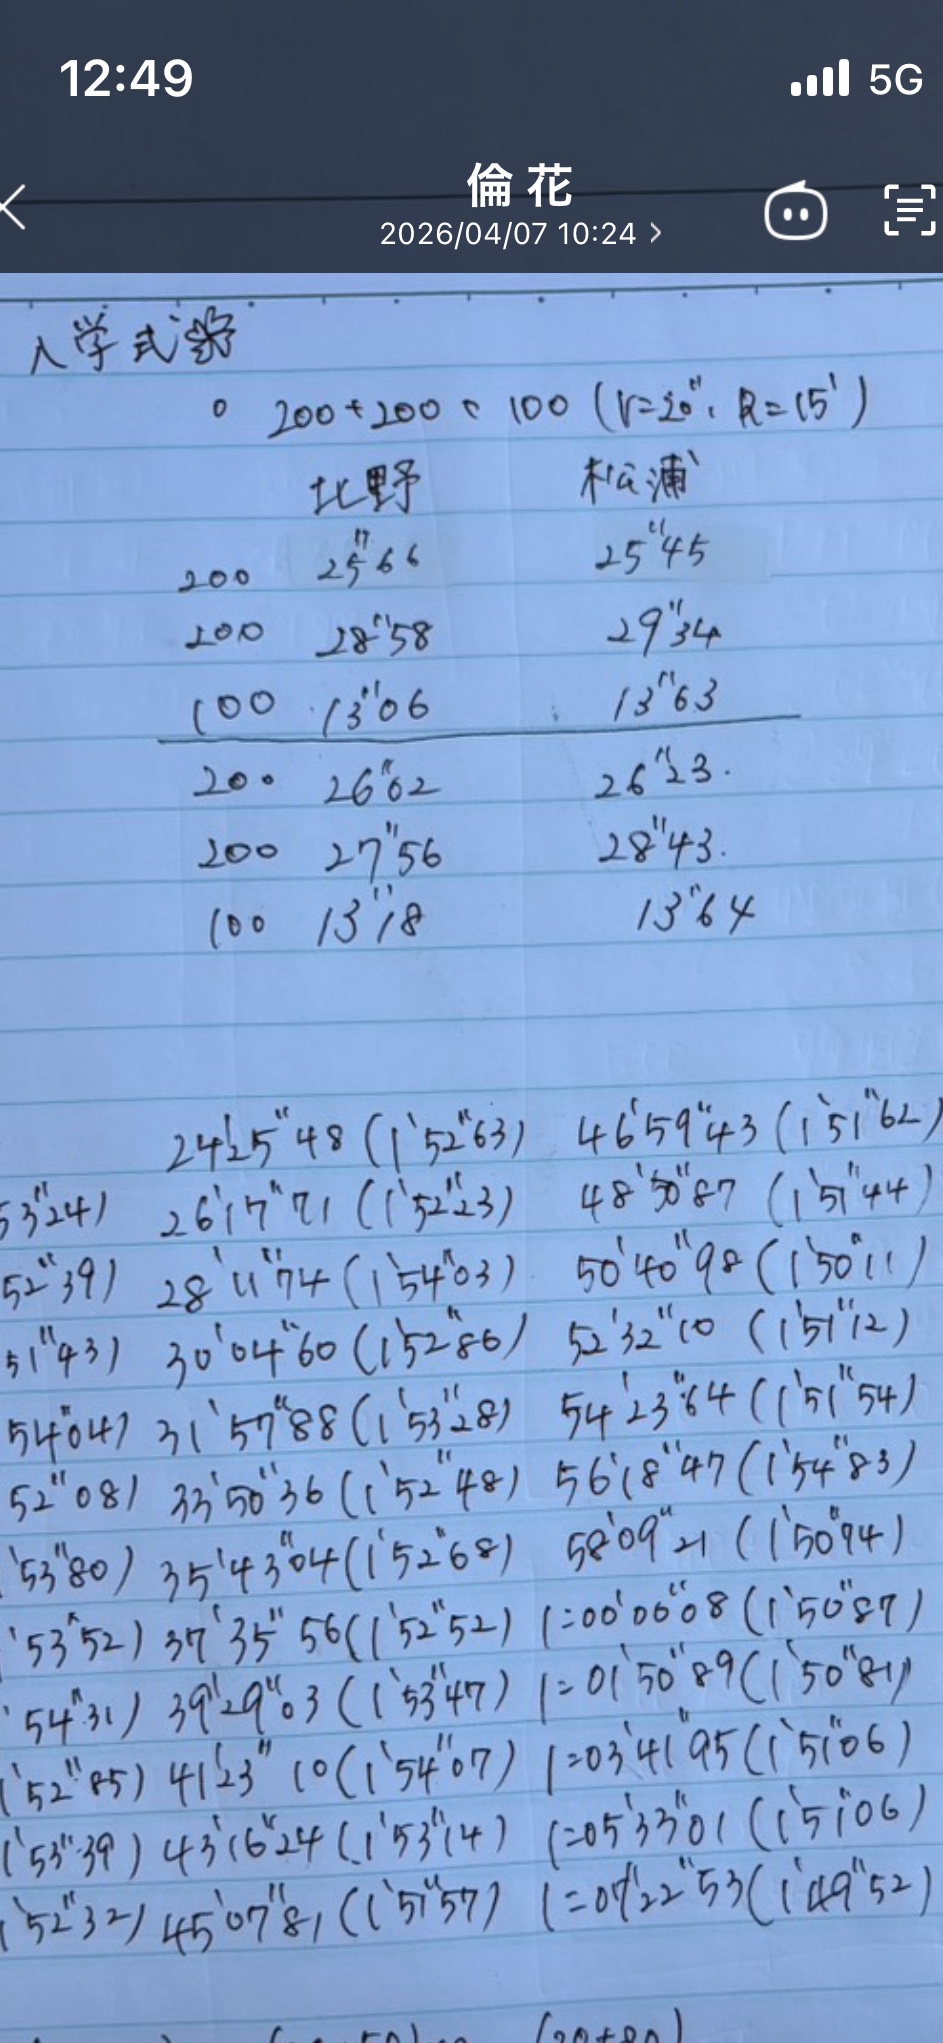 12:49
5G
倫花
2026/04/07 10:24
入学式
200+200+100 (r=20", R=15')
北野 松浦
200 25"66 25"45
200 28"58 29"34
100 13"06 13"63
200 26"02 26"23.
200 27"56 28"43.
100 13"18 13"64
24'25"48 (1'52"63) 46'59"43 (1'51"62)
53"24) 26'17"71 (1'52"23) 48'50"87 (1'51"44)
52"39) 28'11"74 (1'54"03) 50'40"98 (1'50"11)
51"43) 30'04"60 (1'52"86) 52'32"10 (1'51"12)
54"04) 31'57"88 (1'53"28) 54'23"64 (1'51"54)
52"08) 33'50"36 (1'52"48) 56'18"47 (1'54"83)
'53"80) 35'43"04 (1'52"68) 58'09"21 (1'50"94)
'53"52) 37'35"56 (1'52"52) 1=00'00"08 (1'50"87)
'54"31) 39'29"03 (1'53"47) 1=01'50"89 (1'50"81)
1'52"85) 41'23"10 (1'54"07) 1=03'41"95 (1'51"06)
1'53"39) 43'16"24 (1'53"14) 1=05'33"01 (1'51"06)
1'52"32) 45'07"81 (1'51"57) 1=07'22"53 (1'49"52)